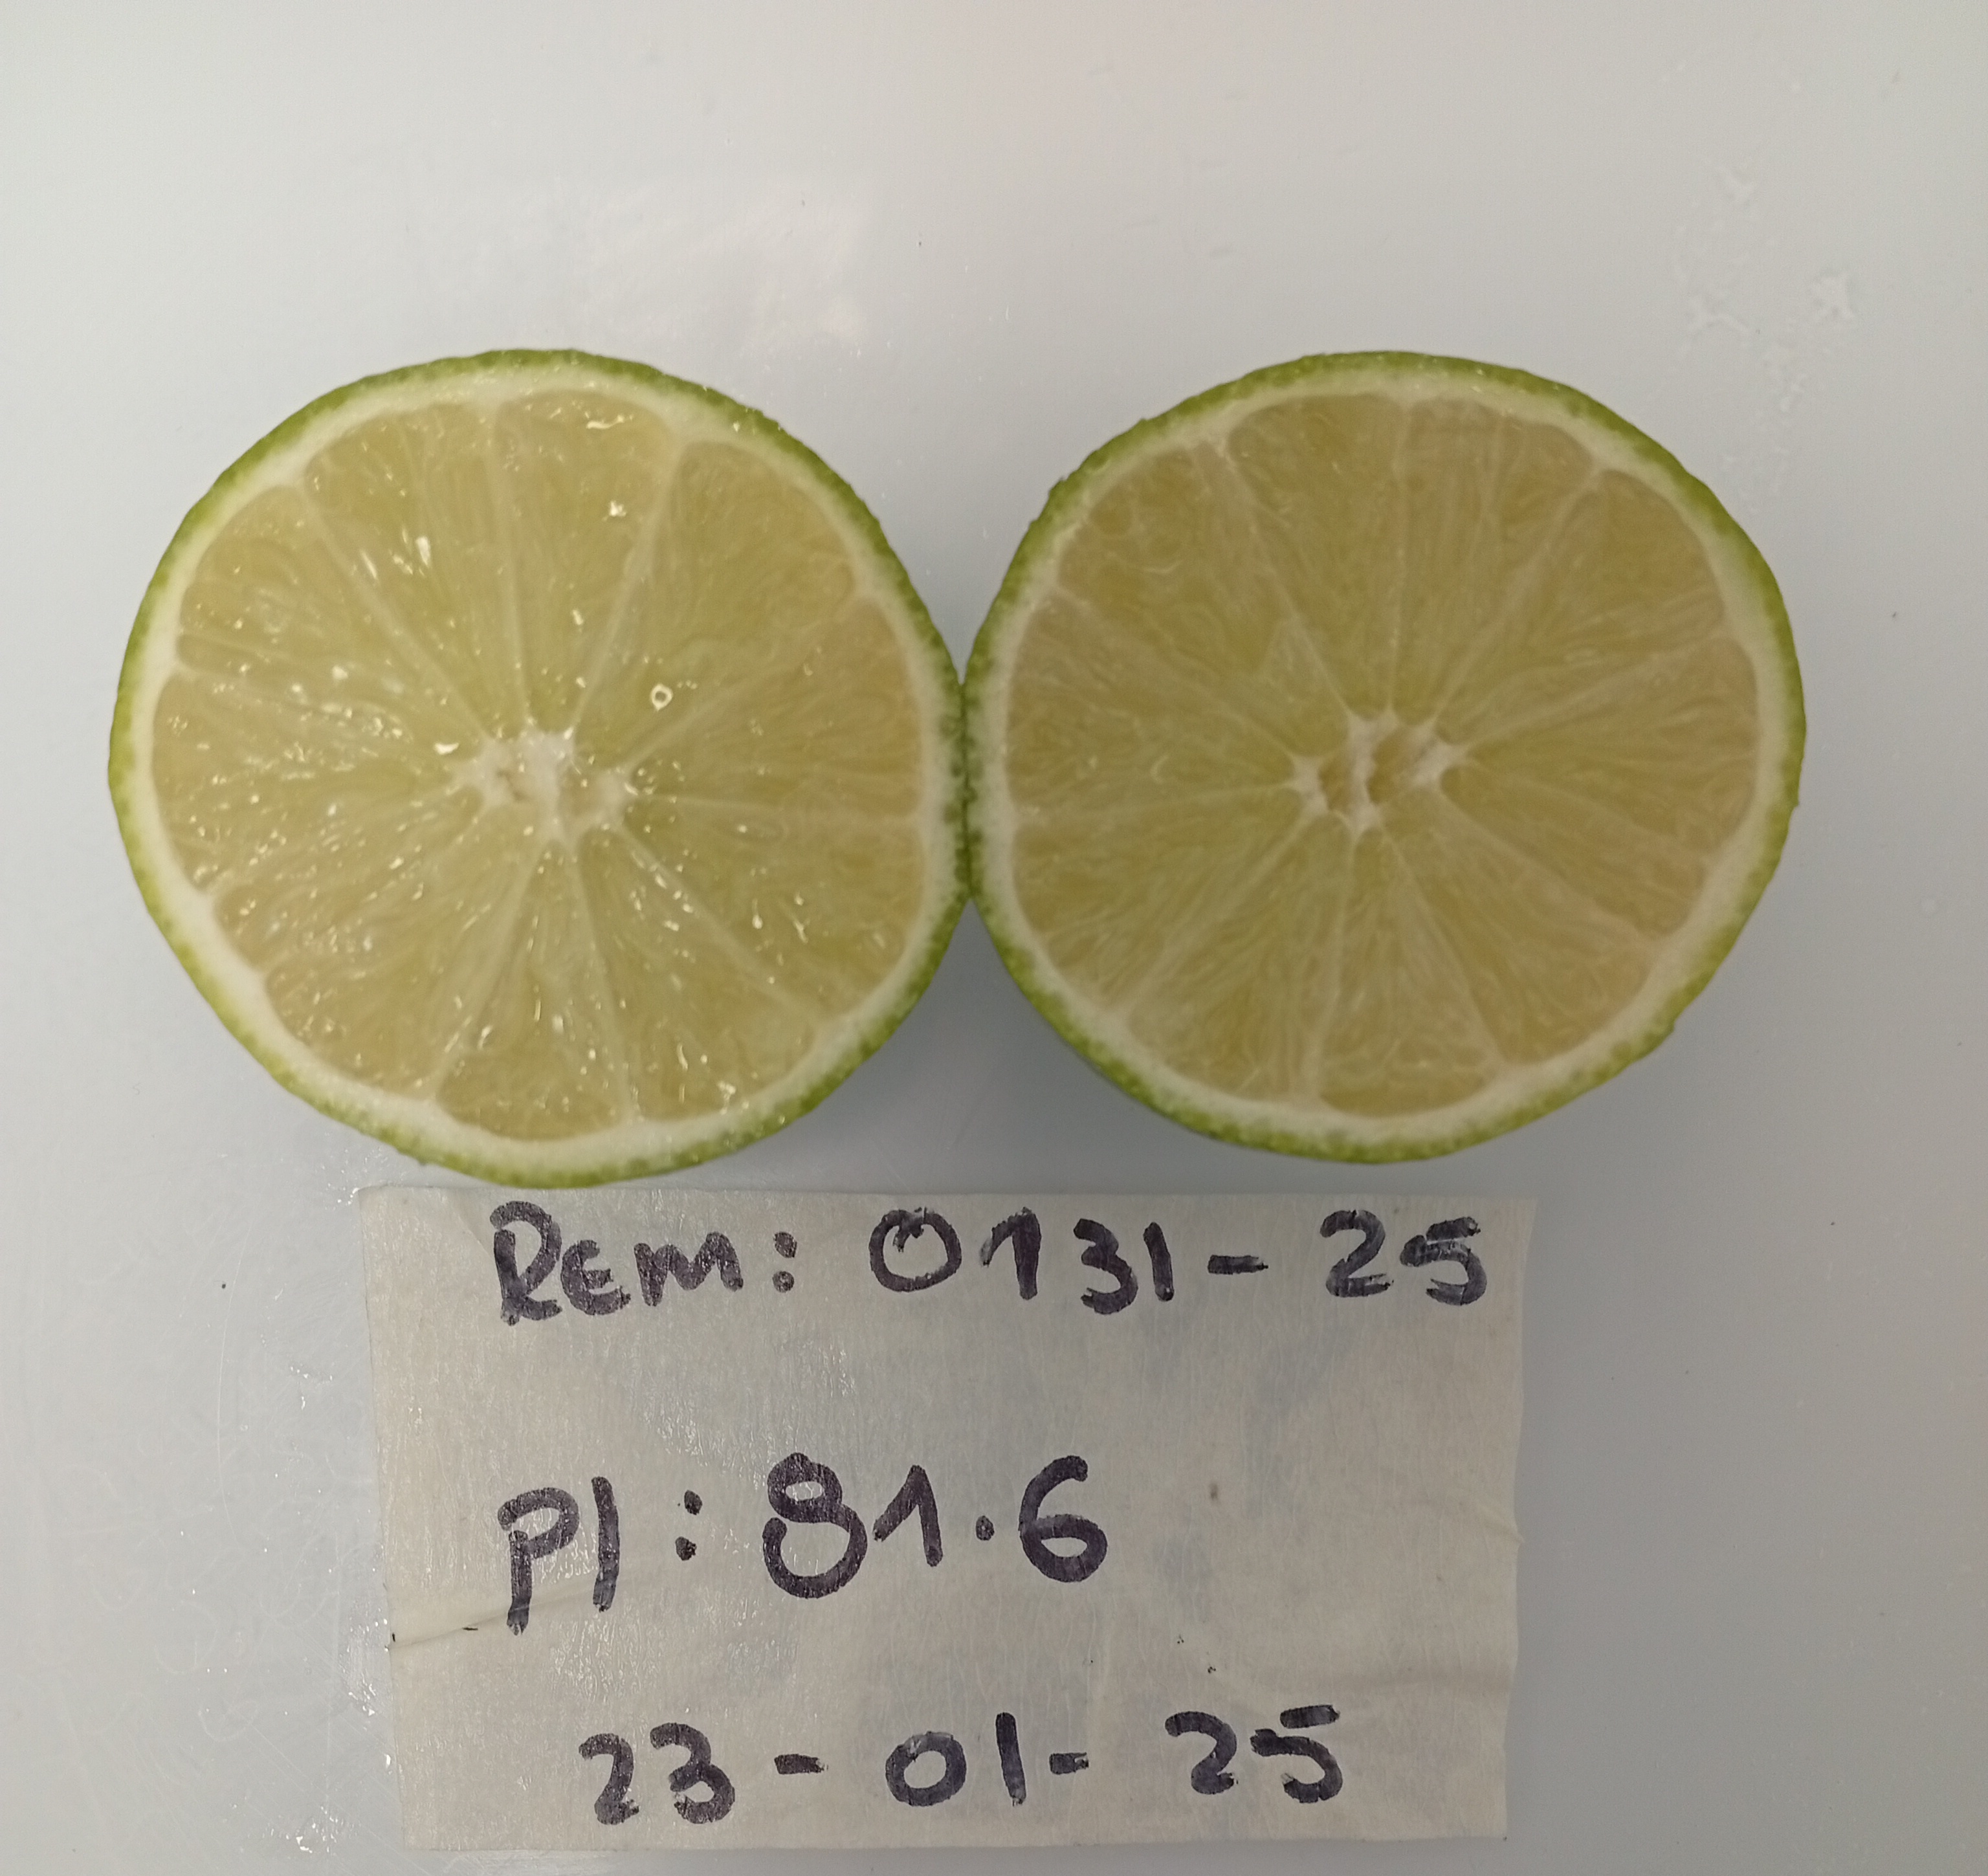 REM: 0131-25
PI: 81.6
23-01-25